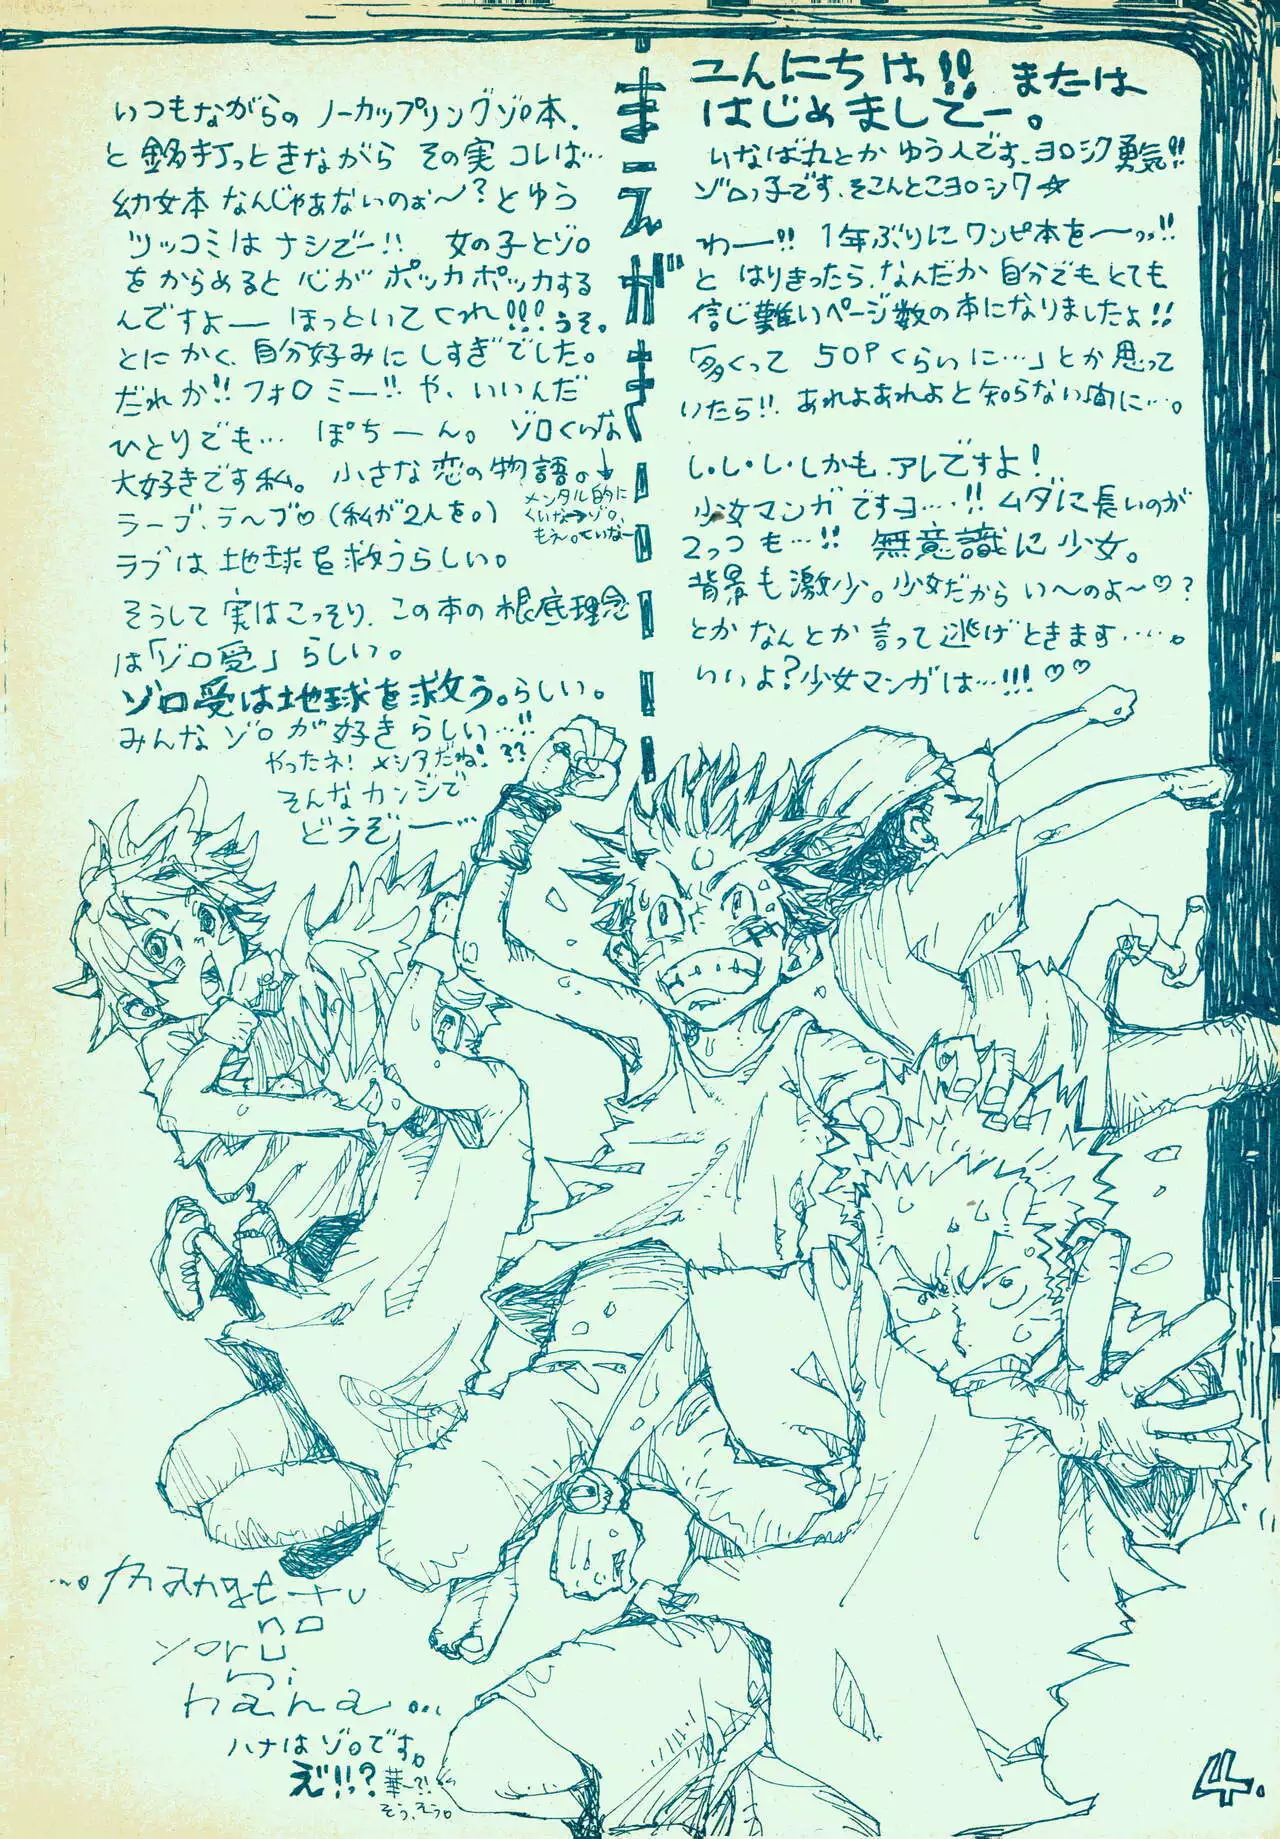 まーえがき
こんにちは!! または
はじめましてー。
いなばれとかゆう人です、ヨロシク勇気!!
ゾロっ子です、そこんとこヨロシク☆
わー!! 1年ぶりにワンピ本を〜っっ!!
と はりきったら、なんだか自分でもとても
信じ難いページ数の本になりましたよ!!
「多くって 50Pくらいに…」とか思って
いたら!! あれよあれよと知らない間に…。
し・し・し・しかも、アレですよ!
少女マンガですヨ…!! ムダに長いのが
2っつも…!! 無意識に少女。
背景も激少。少女だからい〜のよ〜♡?
とかなんとか言って逃げときます……。
いいよ?少女マンガは…!!! ♡♡
いつもながらの ノーカップリングゾロ本、
と銘打っときながら その実コレは…
幼女本なんじゃあないのぉ〜?とゆう
ツッコミはナシでー!! 女の子とゾロ
をからめると心がポッカポッカする
んですよー ほっといてくれ!!! うそ。
とにかく、自分好みにしすぎでした。
だれか!! フォロミー!! や、いいんだ
ひとりでも… ぽちーん。 ゾロくいな
大好きです私。 小さな恋の物語。↓
メンタル的に
くいな→ゾロ。
ラーブ、ラ〜ブ♡(私が2人を。)
ラブは地球を救うらしい。
そうして実はこっそり、この本の根底理念
は「ゾロ受」らしい。
ゾロ受は地球を救う。らしい。
みんなゾロが好きらしい…!!
やったネ! メシアだね! ??
そんなカンジで
どうぞー…
...mangetu
no
yoru
ni
hana...
ハナはゾロです。
え!!っ? 華〜?!
そう、えう。
4.